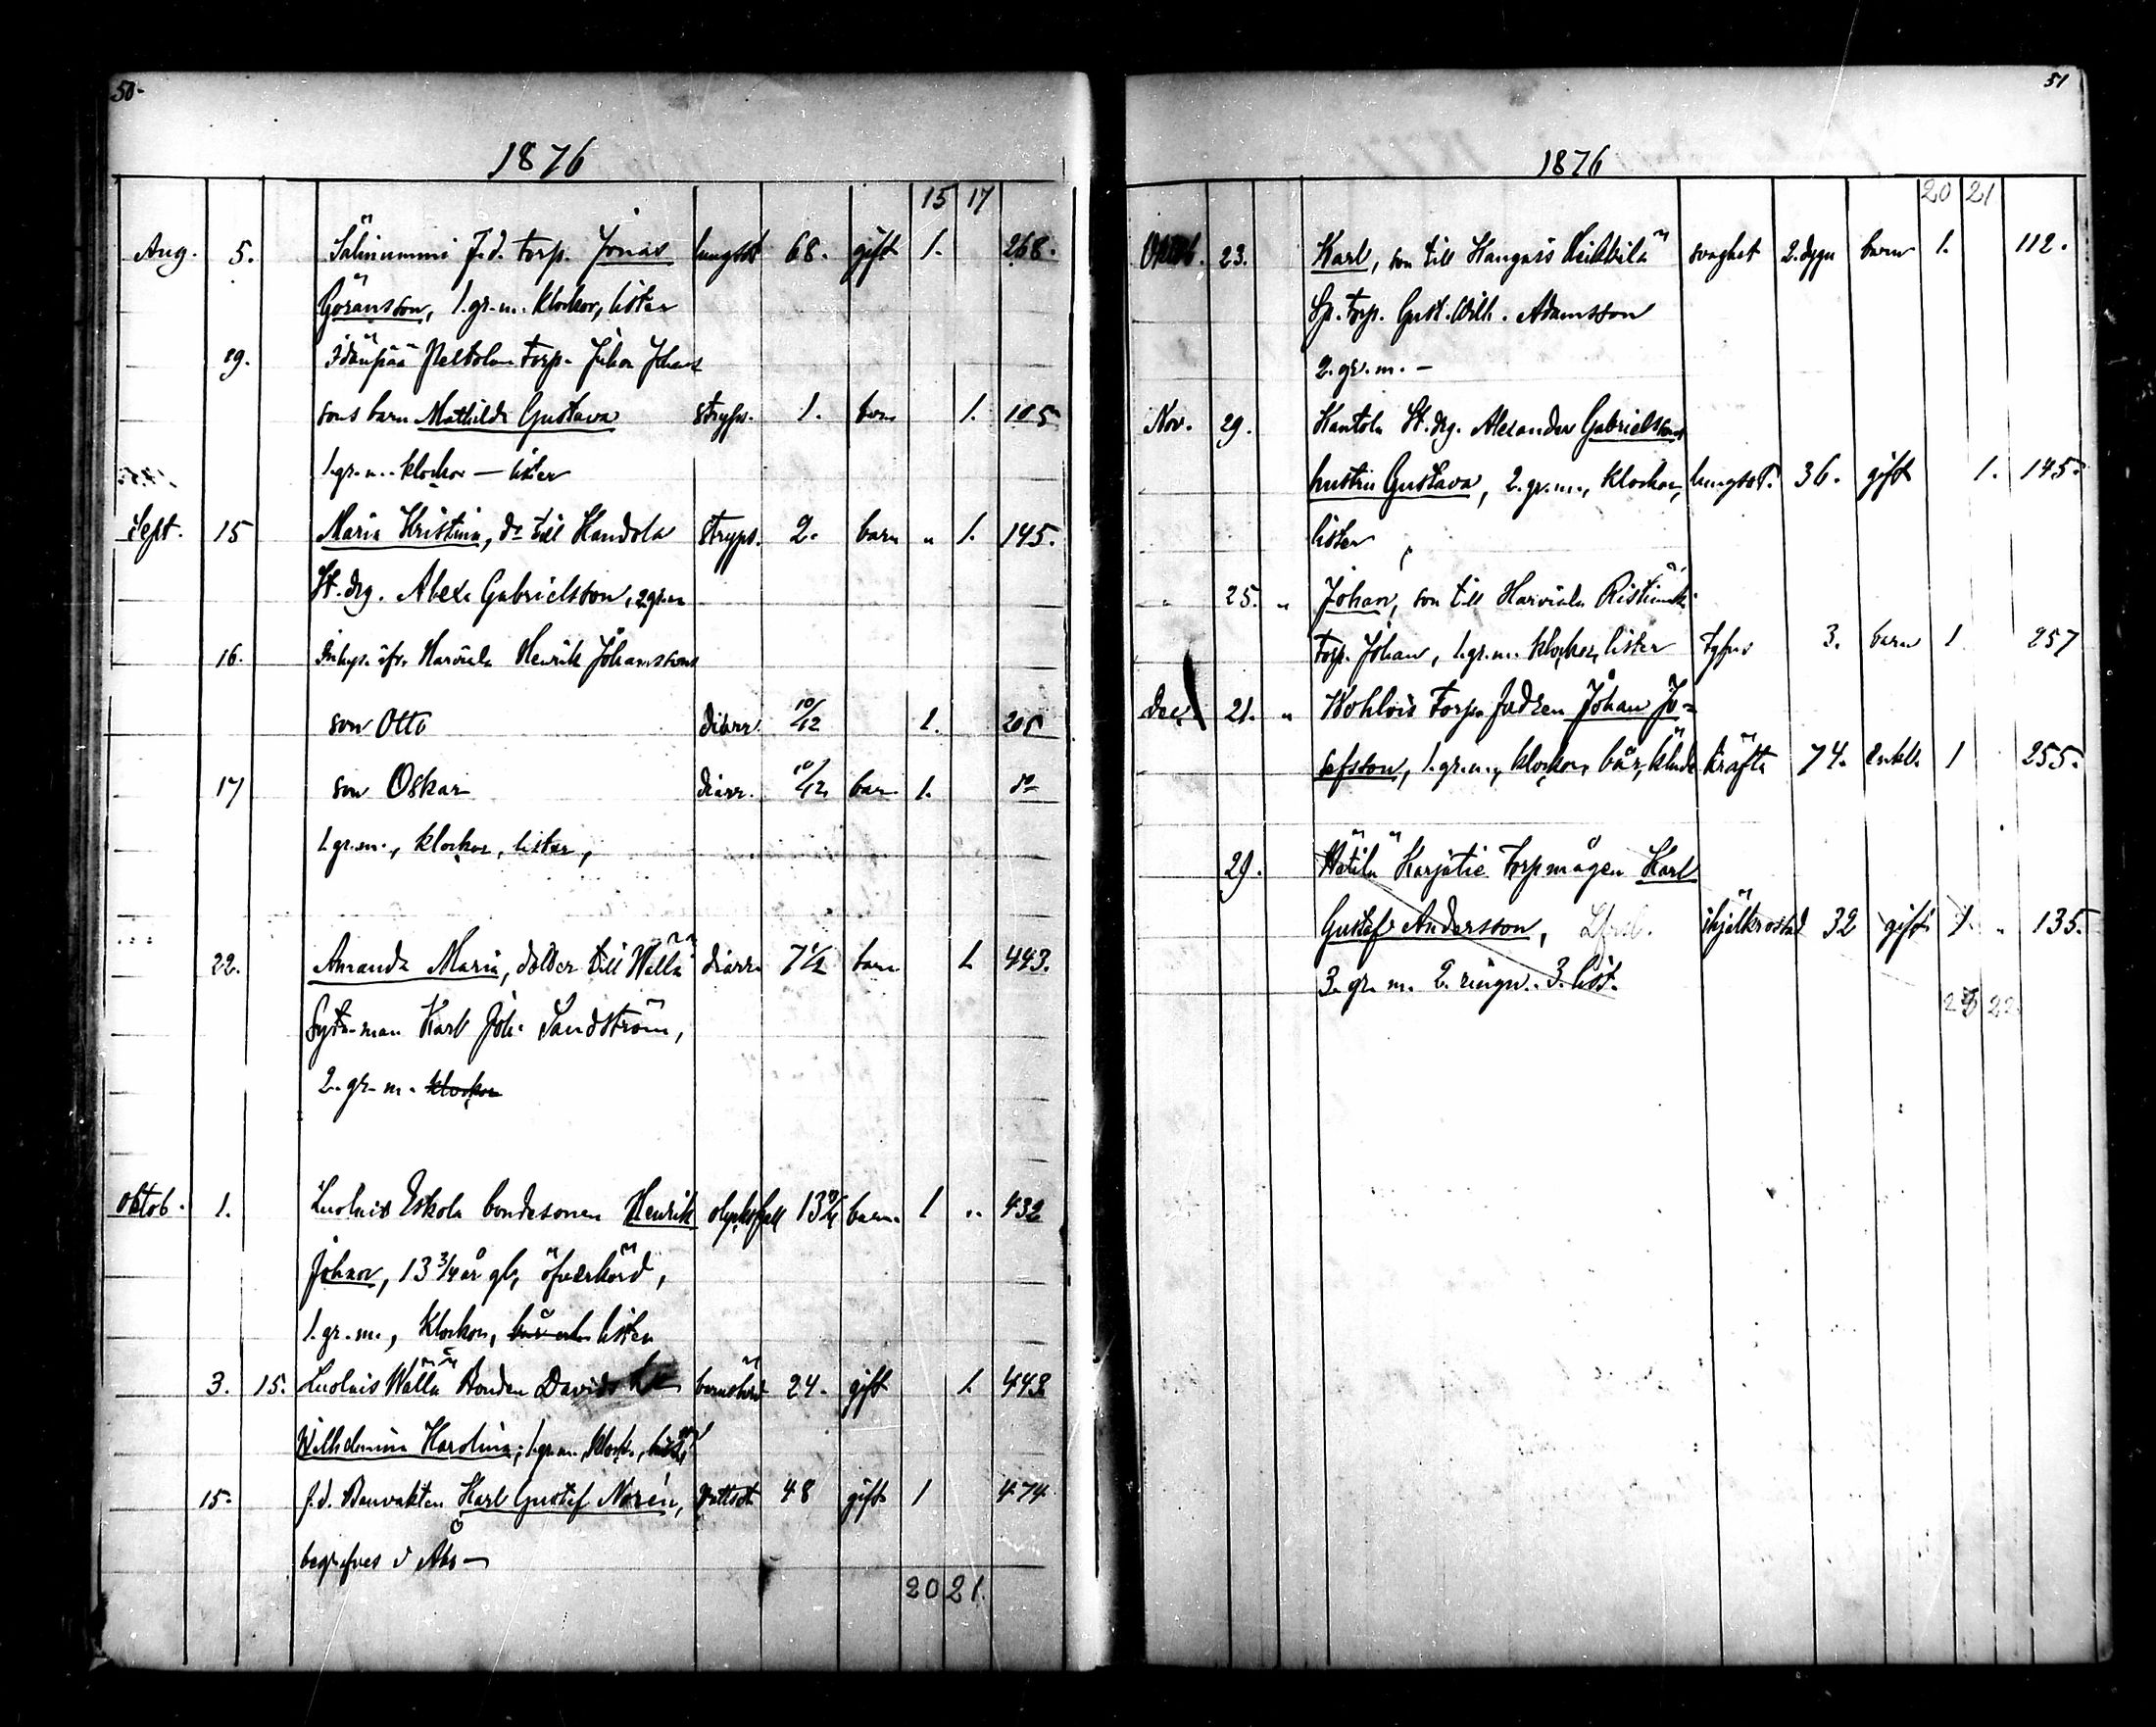 50.
1876
15 17
Aug. 5. Sälinummi f.d. torp. Jonas lungsot 68. gift 1. 268.
Göransson, 1.gr.m. klockor, lister
29. Torp. Johan Johans
sons barn Mathilda Gustava stryps. 1. barn 1. 105
1.gr.m. klockor — lister
Sept. 15 Maria Kristina, dr till Kandola stryps. 2. barn " 1. 145.
St. drg. Alex. Gabrielsson, 2.gr.m
16. Inhys. ifr. Harviala Henrik Johanssons
son Otto diarr. 10/12 1. 205
17 son Oskar diarr. 10/12 barn 1. do
1.gr.m., klockor, lister,
22. Amanda Maria, dotter till Wällä diarr. 7 1/2 barn 1. 443.
Sytn.man Karl Joh. Sandström,
2. gr. m. klockor
Oktob. 1. Luolais Eskola bondesonen Henrik barn 1 " 432
Johan, 13 3/4 år gl, öfverkörd,
1.gr.m., klockor, lister
3. 15. Luolais Wällä Bonden Davids barnsbörd 24. gift 1. 443
Wilhelmina Karolina, 1.gr.m. klock.,
15. f.d. Banvakten Karl Gustaf Norén, 48 gift 1 474
begrafves i Åbo —
20 21.
51
1876
20 21
Oktob. 23. Karl, son till Kangais Heikkilä svaghet 2. dygn barn 1. 112.
Sp. torp. Gust. Wilh. Adamsson
2. gr. m. —
Nov. 29. Kantola St. drg. Alexander Gabrielssons
hustru Gustava, 2.gr.m., klockor, lungsot. 36. gift 1. 145.
lister
" 25. " Johan, son till Harviala
Torp. Johan, 1.gr.m. klockor, lister tyfus 3. barn 1 257
Dec. 21. " Torp. fadren Johan Jo=
sefsson, 1.gr.m., klockor, bår, kläde kräfta 74. enkl. 1 255.
29. Hätilä Karjatie Torpmågen Karl
Gustaf Andersson, ihjälkrossad 32 gift 1. " 135.
3. gr. m. 2. ringn. 3. list.
23 22